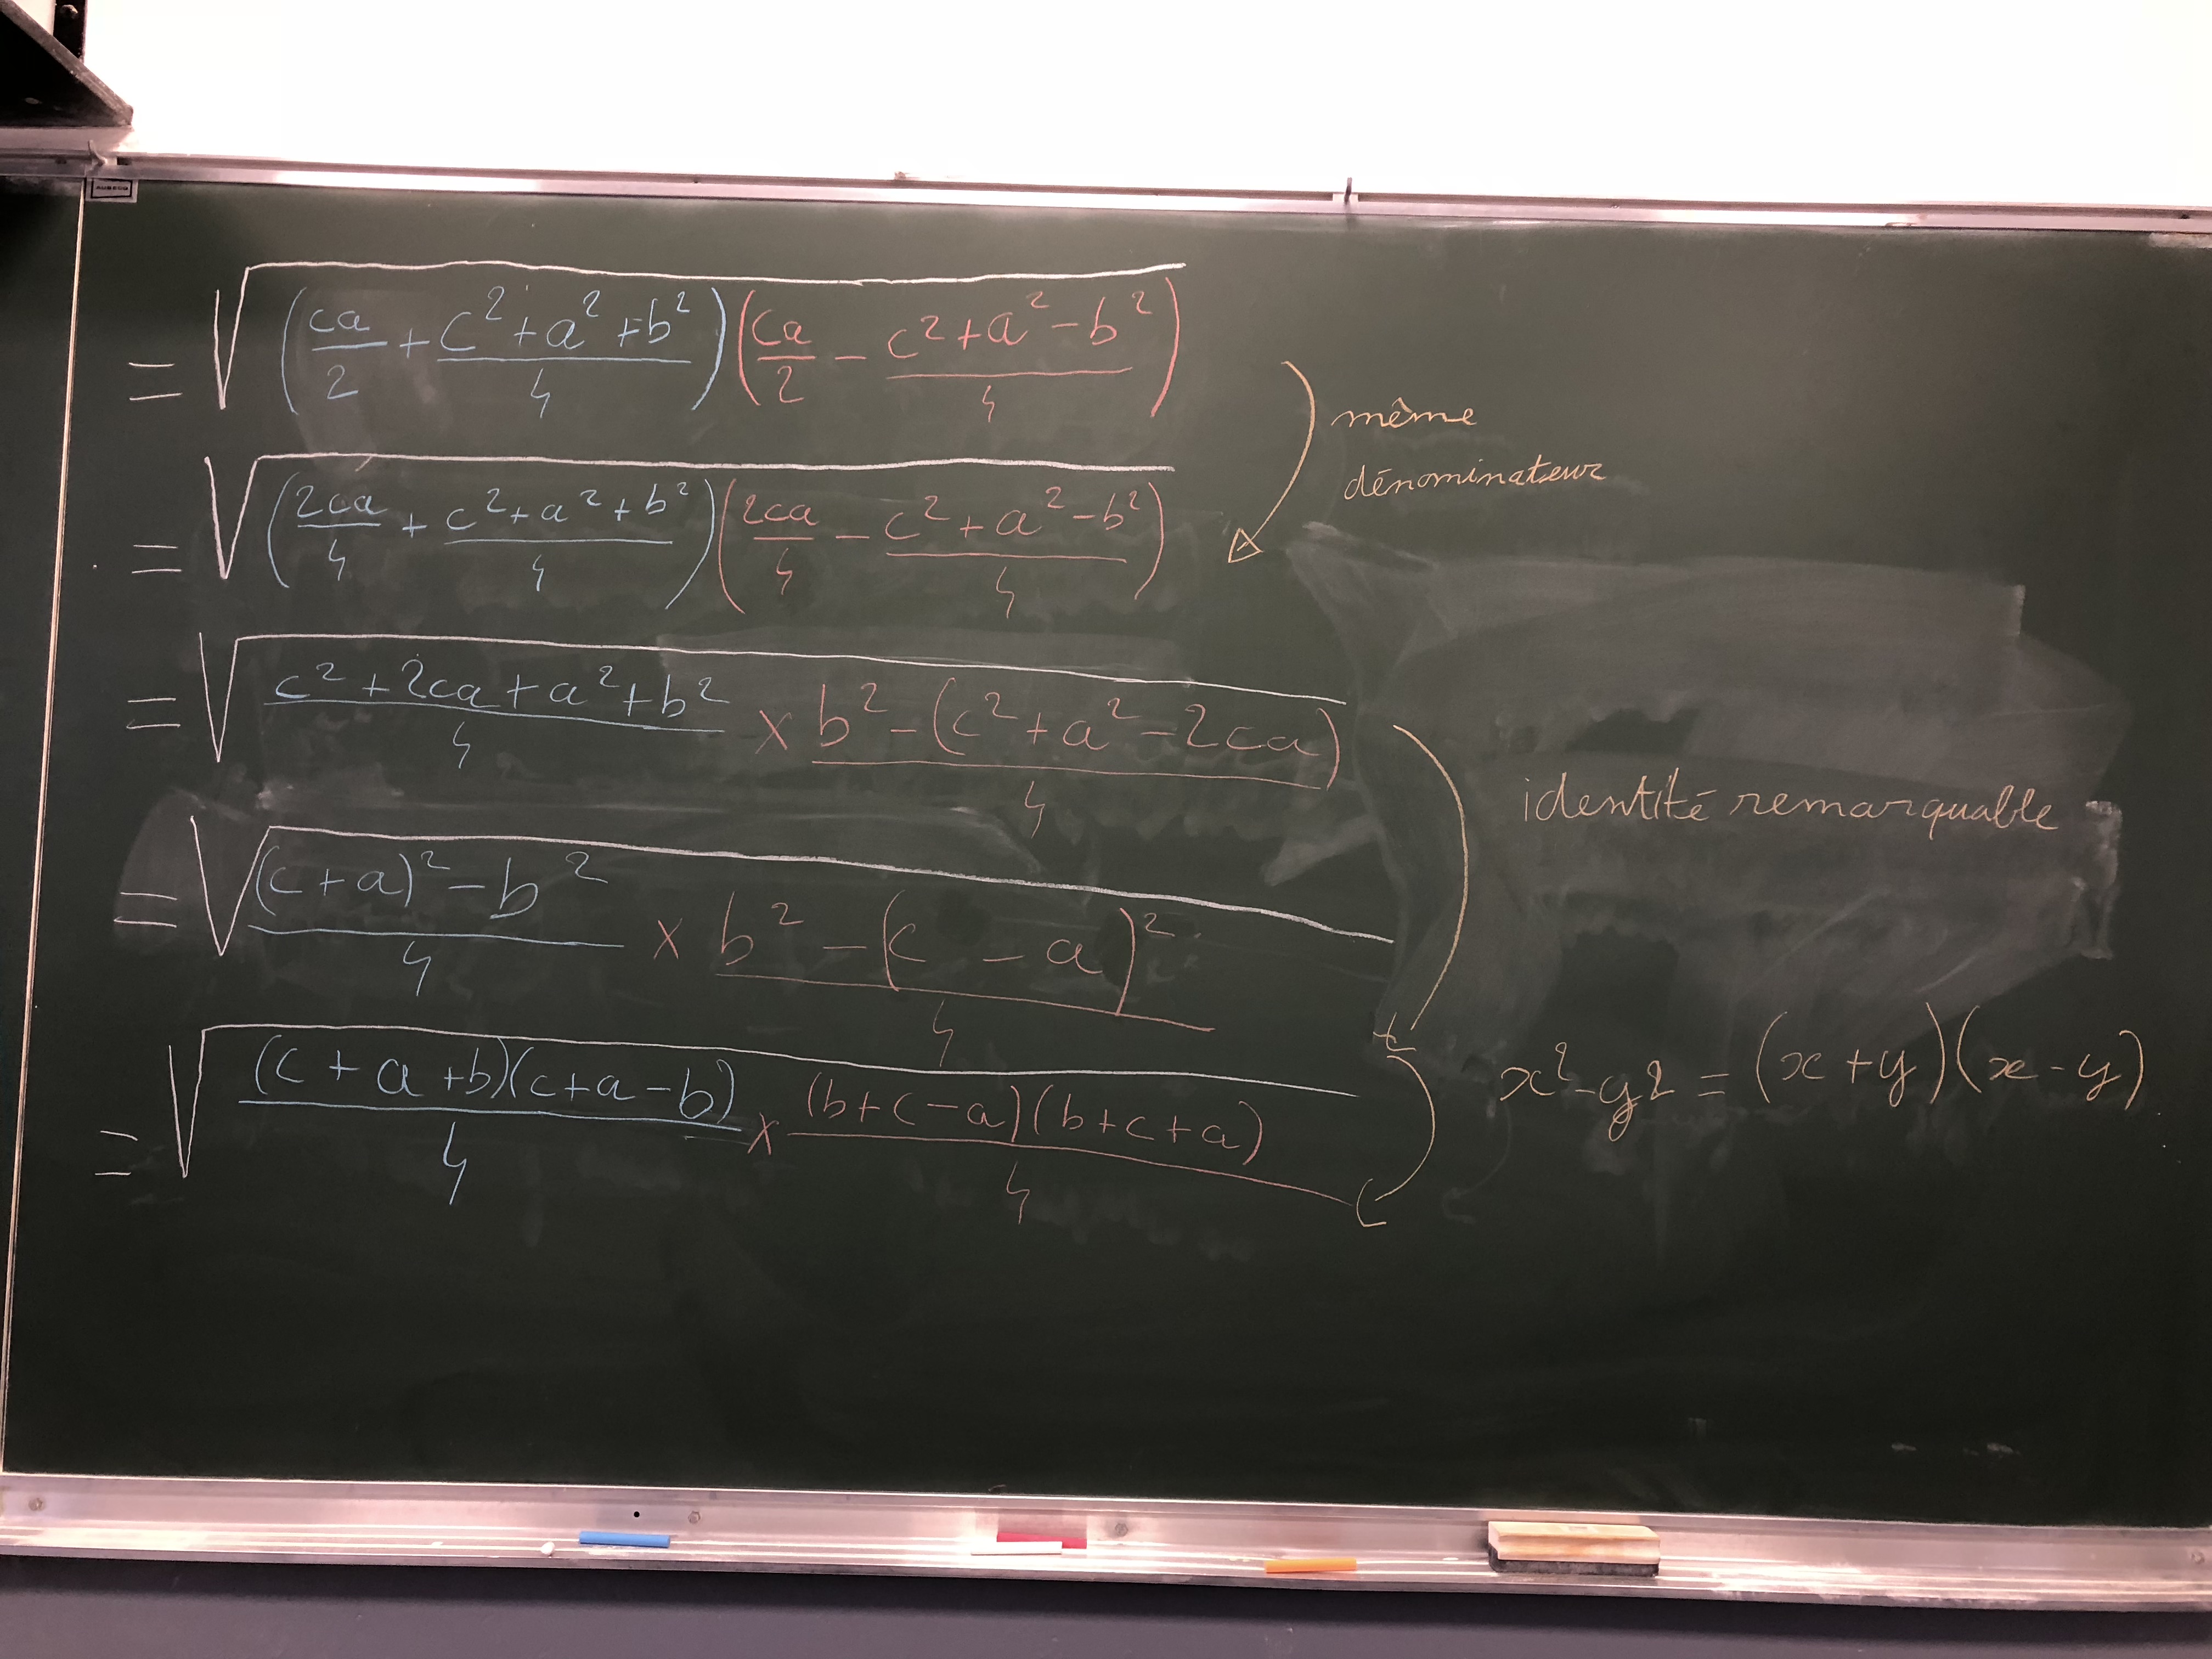 AUBECQ
= √((ca/2 + c²+a²+b²/4)(ca/2 - c²+a²-b²/4))
même
dénominateur
= √((2ca/4 + c²+a²+b²/4)(2ca/4 - c²+a²-b²/4))
= √(c²+2ca+a²+b²/4 × b²-(c²+a²-2ca)/4)
identité remarquable
= √((c+a)²-b²/4 × b²-(c-a)²/4)
x²-y² = (x+y)(x-y)
= √((c+a+b)(c+a-b)/4 × (b+c-a)(b+c+a)/4)